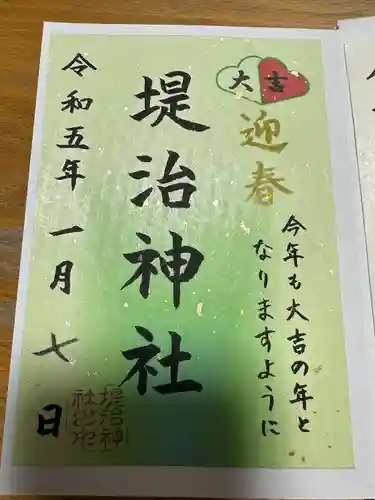 大吉
迎春
今年も大吉の年と
なりますように
堤治神社
令和五年 一月 七日
堤治神
社之印